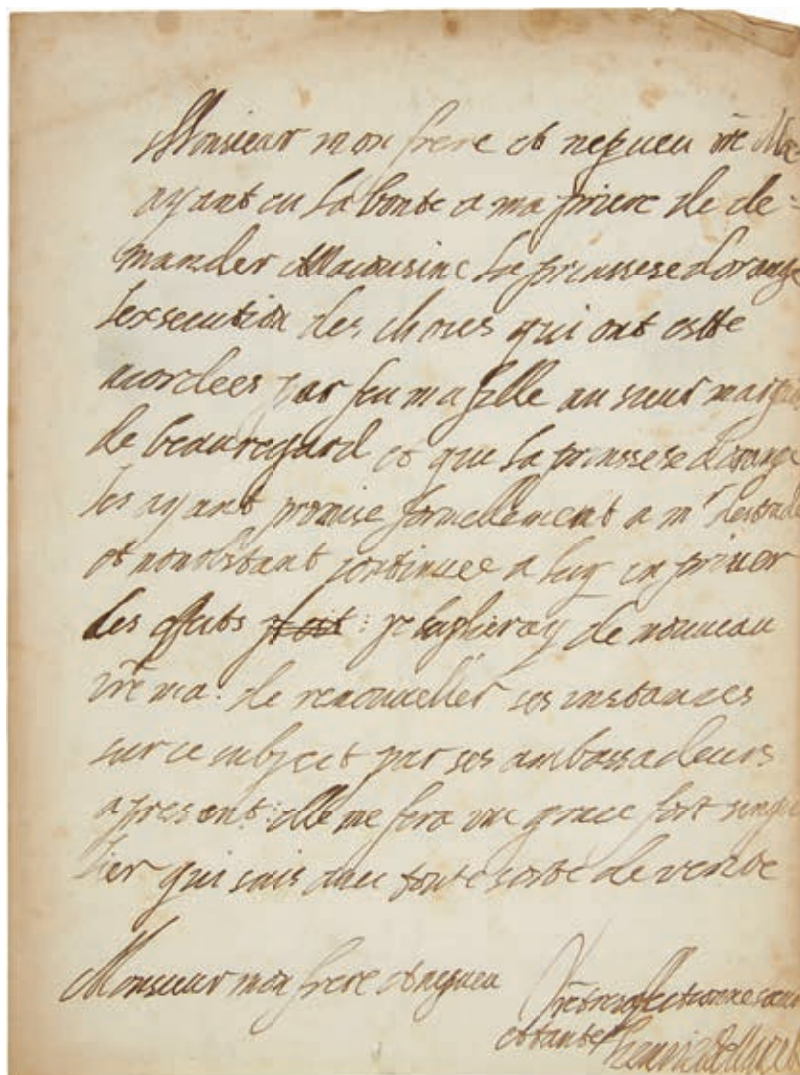 Monsieur mon frere et nepueu vre Ma
ayant eu la bonte a ma priere de de=
mander a Macousine la prinssese dorange
lexsecution des choses qui ont este
acordees par feu ma fille au sieur marquis
de beauregard et que la prinssese dorange
les ayant promise formellement a mr destrade
et nonobstant continuee a luy en priuer
les effects : je suplieray de nouueau
vre ma: de renouueller ses instances
sur ce subject par ses ambassadeurs
apresent: elle me fera une grace fort singu
lier qui suis auec toute sorte de verite
Monsieur mon frere et nepueu
Vre tres affectionnee soeur
et tante Henriette Marie